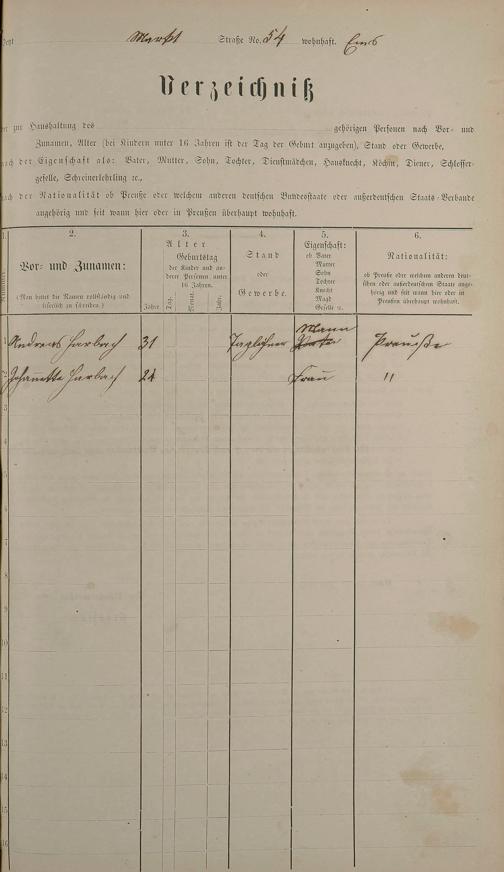 Jetzt Markt Straße No. 54 wohnhaft. Ems
Verzeichniß
der zur Haushaltung des gehörigen Personen nach Vor- und
Zunamen, Alter (bei Kindern unter 16 Jahren ist der Tag der Geburt anzugeben), Stand oder Gewerbe,
nach der Eigenschaft als: Vater, Mutter, Sohn, Tochter, Dienstmädchen, Hausknecht, Köchin, Diener, Schlosser-
geselle, Schreinerlehrling ec.,
nach der Nationalität ob Preuße oder welchem anderen deutschen Bundesstaate oder außerdeutschen Staats-Verbande
angehörig und seit wann hier oder in Preußen überhaupt wohnhaft.
1. 2. 3. 4. 5. 6.
Nummer.
Vor- und Zunamen:
(Man bittet die Namen vollständig und
leserlich zu schreiben.)
Alter
Geburtstag
der Kinder und an-
derer Personen unter
16 Jahren.
Jahre Tag. Monat. Jahr.
Stand
oder
Gewerbe.
Eigenschaft:
ob Vater
Mutter
Sohn
Tochter
Knecht
Magd
Geselle ec.
Nationalität:
ob Preuße oder welchem anderen deut-
schen oder außerdeutschen Staate ange-
hörig und seit wann hier oder in
Preußen überhaupt wohnhaft.
1 Andreas Harbach 31 Taglöhner Mann Preuße
2 Johanette Harbach 24 Frau "
3
4
5
6
7
8
9
10
11
12
13
14
15
16